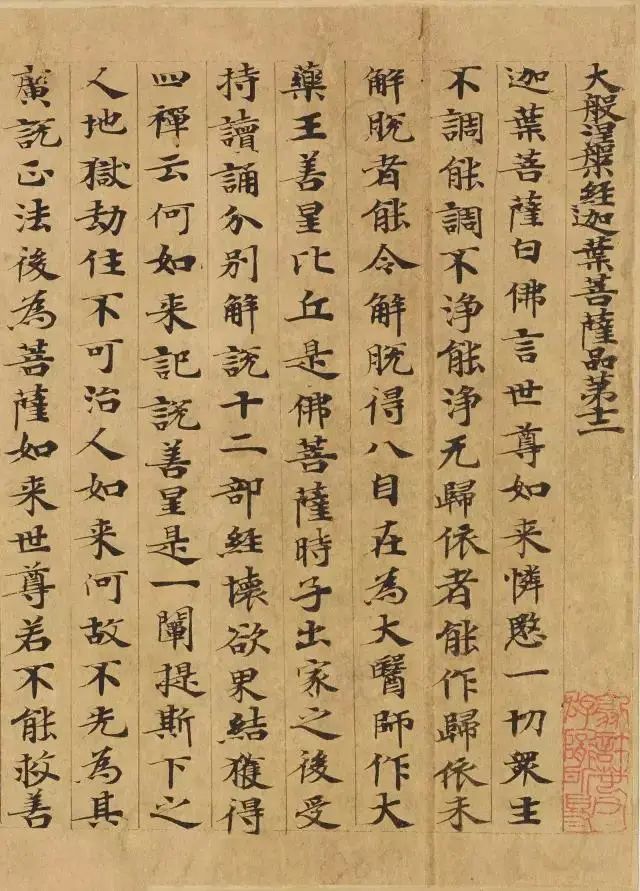 大般涅槃經迦葉菩薩品第十二
迦葉菩薩白佛言世尊如来憐愍一切衆生
不調能調不浄能浄无歸依者能作歸依未
解脱者能令解脱得八自在為大醫師作大
藥王善星比丘是佛菩薩時子出家之後受
持讀誦分别解說十二部經壊欲界結獲得
四禪云何如来記說善星是一闡提斯下之
人地獄劫住不可治人如来何故不先為其
廣說正法後為菩薩如来世尊若不能救善